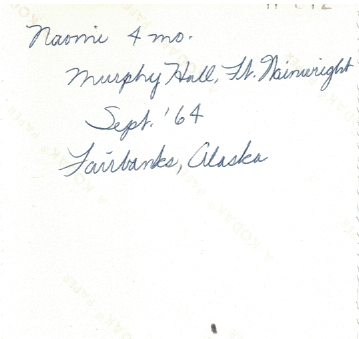 Naomi 4 mo.
Murphy Hall, Ft. Wainwright
Sept. '64
Fairbanks, Alaska